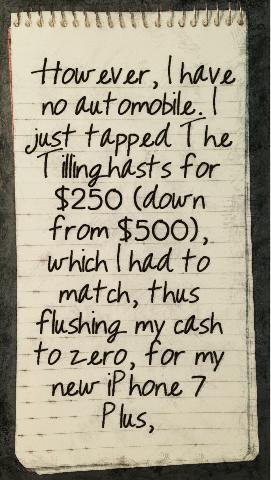 However, I have
no automobile. I
just tapped The
Tillinghasts for
$250 (down
from $500),
which I had to
match, thus
flushing my cash
to zero, for my
new iPhone 7
Plus,